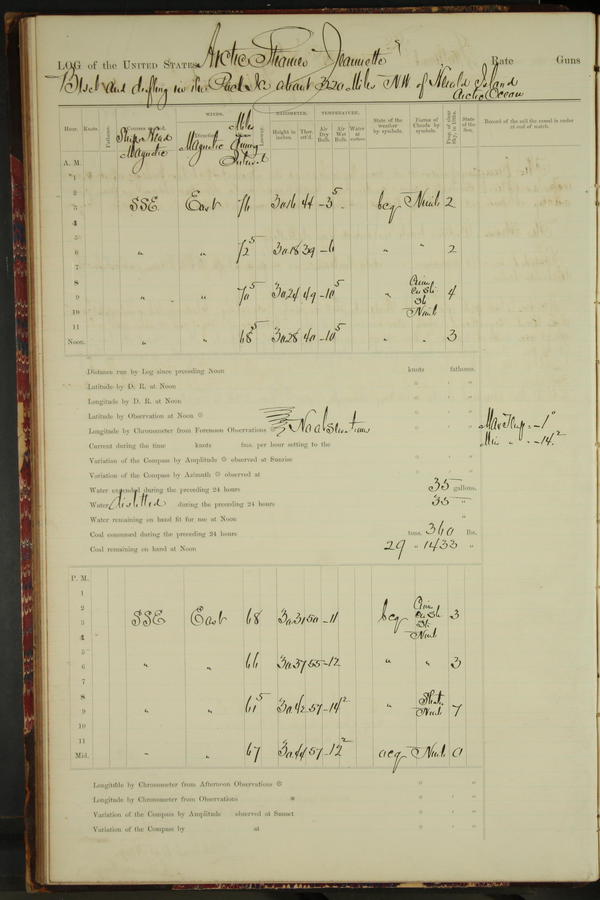 LOG of the UNITED STATES Arctic Steamer Jeannette Rate Guns
Beset and drifting in the Pack Ice about 320 Miles NW of Herald Island
Arctic Ocean
Hour. Knots. Fathoms. Courses steered. WINDS. BAROMETER. TEMPERATURE. State of the weather by symbols. Forms of Clouds by symbols. Prop. of clear Sky, in 10ths. State of the Sea. Record of the sail the vessel is under at end of watch.
Ship's Head Magnetic Direction Magnetic Miles During Interval Height in inches. Ther. att'd. Air Dry Bulb. Air Wet Bulb. Water at surface.
A. M.
1
2
3 SSE East 76 30.16 44 -3 5 bcq Nimb 2
4
5
6 " " 72 5 30.18 39 -6 " " 2
7
8
9 " " 70 5 30.24 49 -10 5 " Cir Str Nimb 4
10
11
Noon. " " 68 5 30.28 40 -10 5 " " 3
Distance run by Log since preceding Noon knots fathoms.
Latitude by D. R. at Noon
Longitude by D. R. at Noon
Latitude by Observation at Noon
Longitude by Chronometer from Forenoon Observations No observations
Max Temp. -1°
Min " -14.2
Current during the time knots fms. per hour setting to the
Variation of the Compass by Amplitude observed at Sunrise
Variation of the Compass by Azimuth observed at
Water expended during the preceding 24 hours 35 gallons.
Water distilled during the preceding 24 hours 35 "
Water remaining on hand fit for use at Noon "
Coal consumed during the preceding 24 hours tons, 360 lbs.
Coal remaining on hand at Noon 29 " 1433 "
P. M.
1
2
3 SSE East 68 30.31 50 -11 bcq Cir Str Nimb 3
4
5
6 " " 66 30.37 55 -12 " " 3
7
8
9 " " 61 5 30.42 57 -14 2 " Strat. Nimb 7
10
11
Mid. " " 67 30.44 57 -12 2 ocq Nimb 0
Longitude by Chronometer from Afternoon Observations
Longitude by Chronometer from Observations
Variation of the Compass by Amplitude observed at Sunset
Variation of the Compass by at